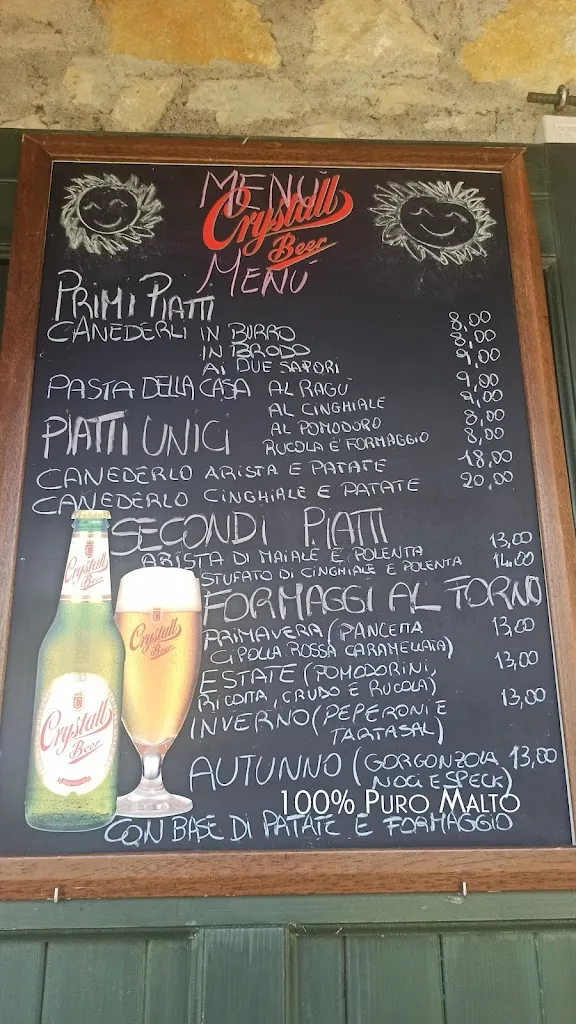 MENÙ
Crystall
Beer
MENÙ
PRIMI PIATTI
CANEDERLI IN BURRO 8,00
IN BRODO 8,00
AI DUE SAPORI 9,00
PASTA DELLA CASA AL RAGÙ 9,00
AL CINGHIALE 9,00
AL POMODORO 8,00
RUCOLA E FORMAGGIO 8,00
PIATTI UNICI
CANEDERLO ARISTA E PATATE 18,00
CANEDERLO CINGHIALE E PATATE 20,00
SECONDI PIATTI
ARISTA DI MAIALE E POLENTA 13,00
STUFATO DI CINGHIALE E POLENTA 14,00
FORMAGGI AL FORNO
PRIMAVERA (PANCETTA 13,00
CIPOLLA ROSSA CARAMELLATA)
ESTATE (POMODORINI, 13,00
RICOTTA, CRUDO E RUCOLA)
INVERNO (PEPERONI E 13,00
TARTASAL)
AUTUNNO (GORGONZOLA 13,00
NOCI E SPECK)
100% PURO MALTO
CON BASE DI PATATE E FORMAGGIO
Crystall
Beer
Crystall
Beer
Crystall
Beer